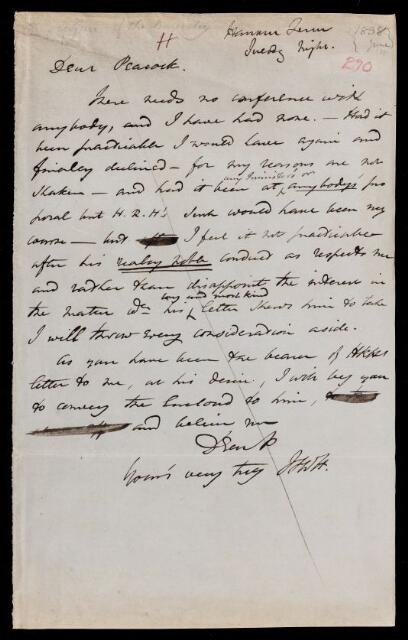 H
Hanover Terr
Tuesday Night.
1838
June
290
Dear Peacock.
There needs no conference with
anybody, and I have had none. - Had it
been practicable I would have again and
finally declined - for my reasons are not
shaken - and had it been at any Minister's or anybody's pro
posal but H.R.H's such would have been my
course - but I feel it not practicable
after his really noble conduct as respects me
and rather than disappoint the interest in
the matter wh his very and most kind letter shews him to take
I will throw every consideration aside.
As you have been the bearer of HRH's
letter to me, at his desire, I will beg you
to convey the enclosed to him,
and believe me
Dear P
Yours very truly JFWH.